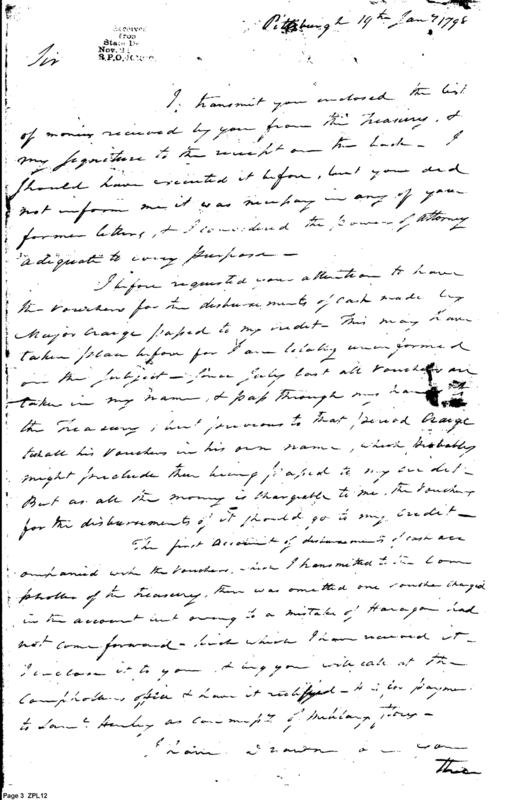 Pittsburgh 19th Jany 1798
Received
from
State De
Nov. 2
S.P.O.
Sir
I transmit you enclosed the list
of monies received by you from the Treasury, &
my signature to the receipt on the back - I
should have executed it before, but you did
not inform me it was necessary in any of your
former letters, & I considered the powers of attorney
adequate to every purpose -
I before requested your attention to have
the vouchers for the disbursements of cash made by
Major Craige passed to my credit - This may have
taken place before for I am totally uninformed
on the subject - since July last all vouchers are
taken in my name, & pass through my hands to
the Treasury; but previous to that period Craige
took all his vouchers in his own name, which probably
might preclude their being passed to my credit -
But as all the money is chargeable to me, the vouchers
for the disbursements of it should go to my credit -
The first account of disbursements of cash acc
ompanied with the vouchers which I transmitted to the Com
ptroller of the Treasury, there was omitted one voucher charged
in the account but owing to a mistake of had
not come forward - since which I have received it -
I enclose it to you & beg you will call at the
Comptrollers office & have it rectified - it is for payment
to Saml. as of Military Stores -
I have drawn on you
three
Page 3 ZPL12